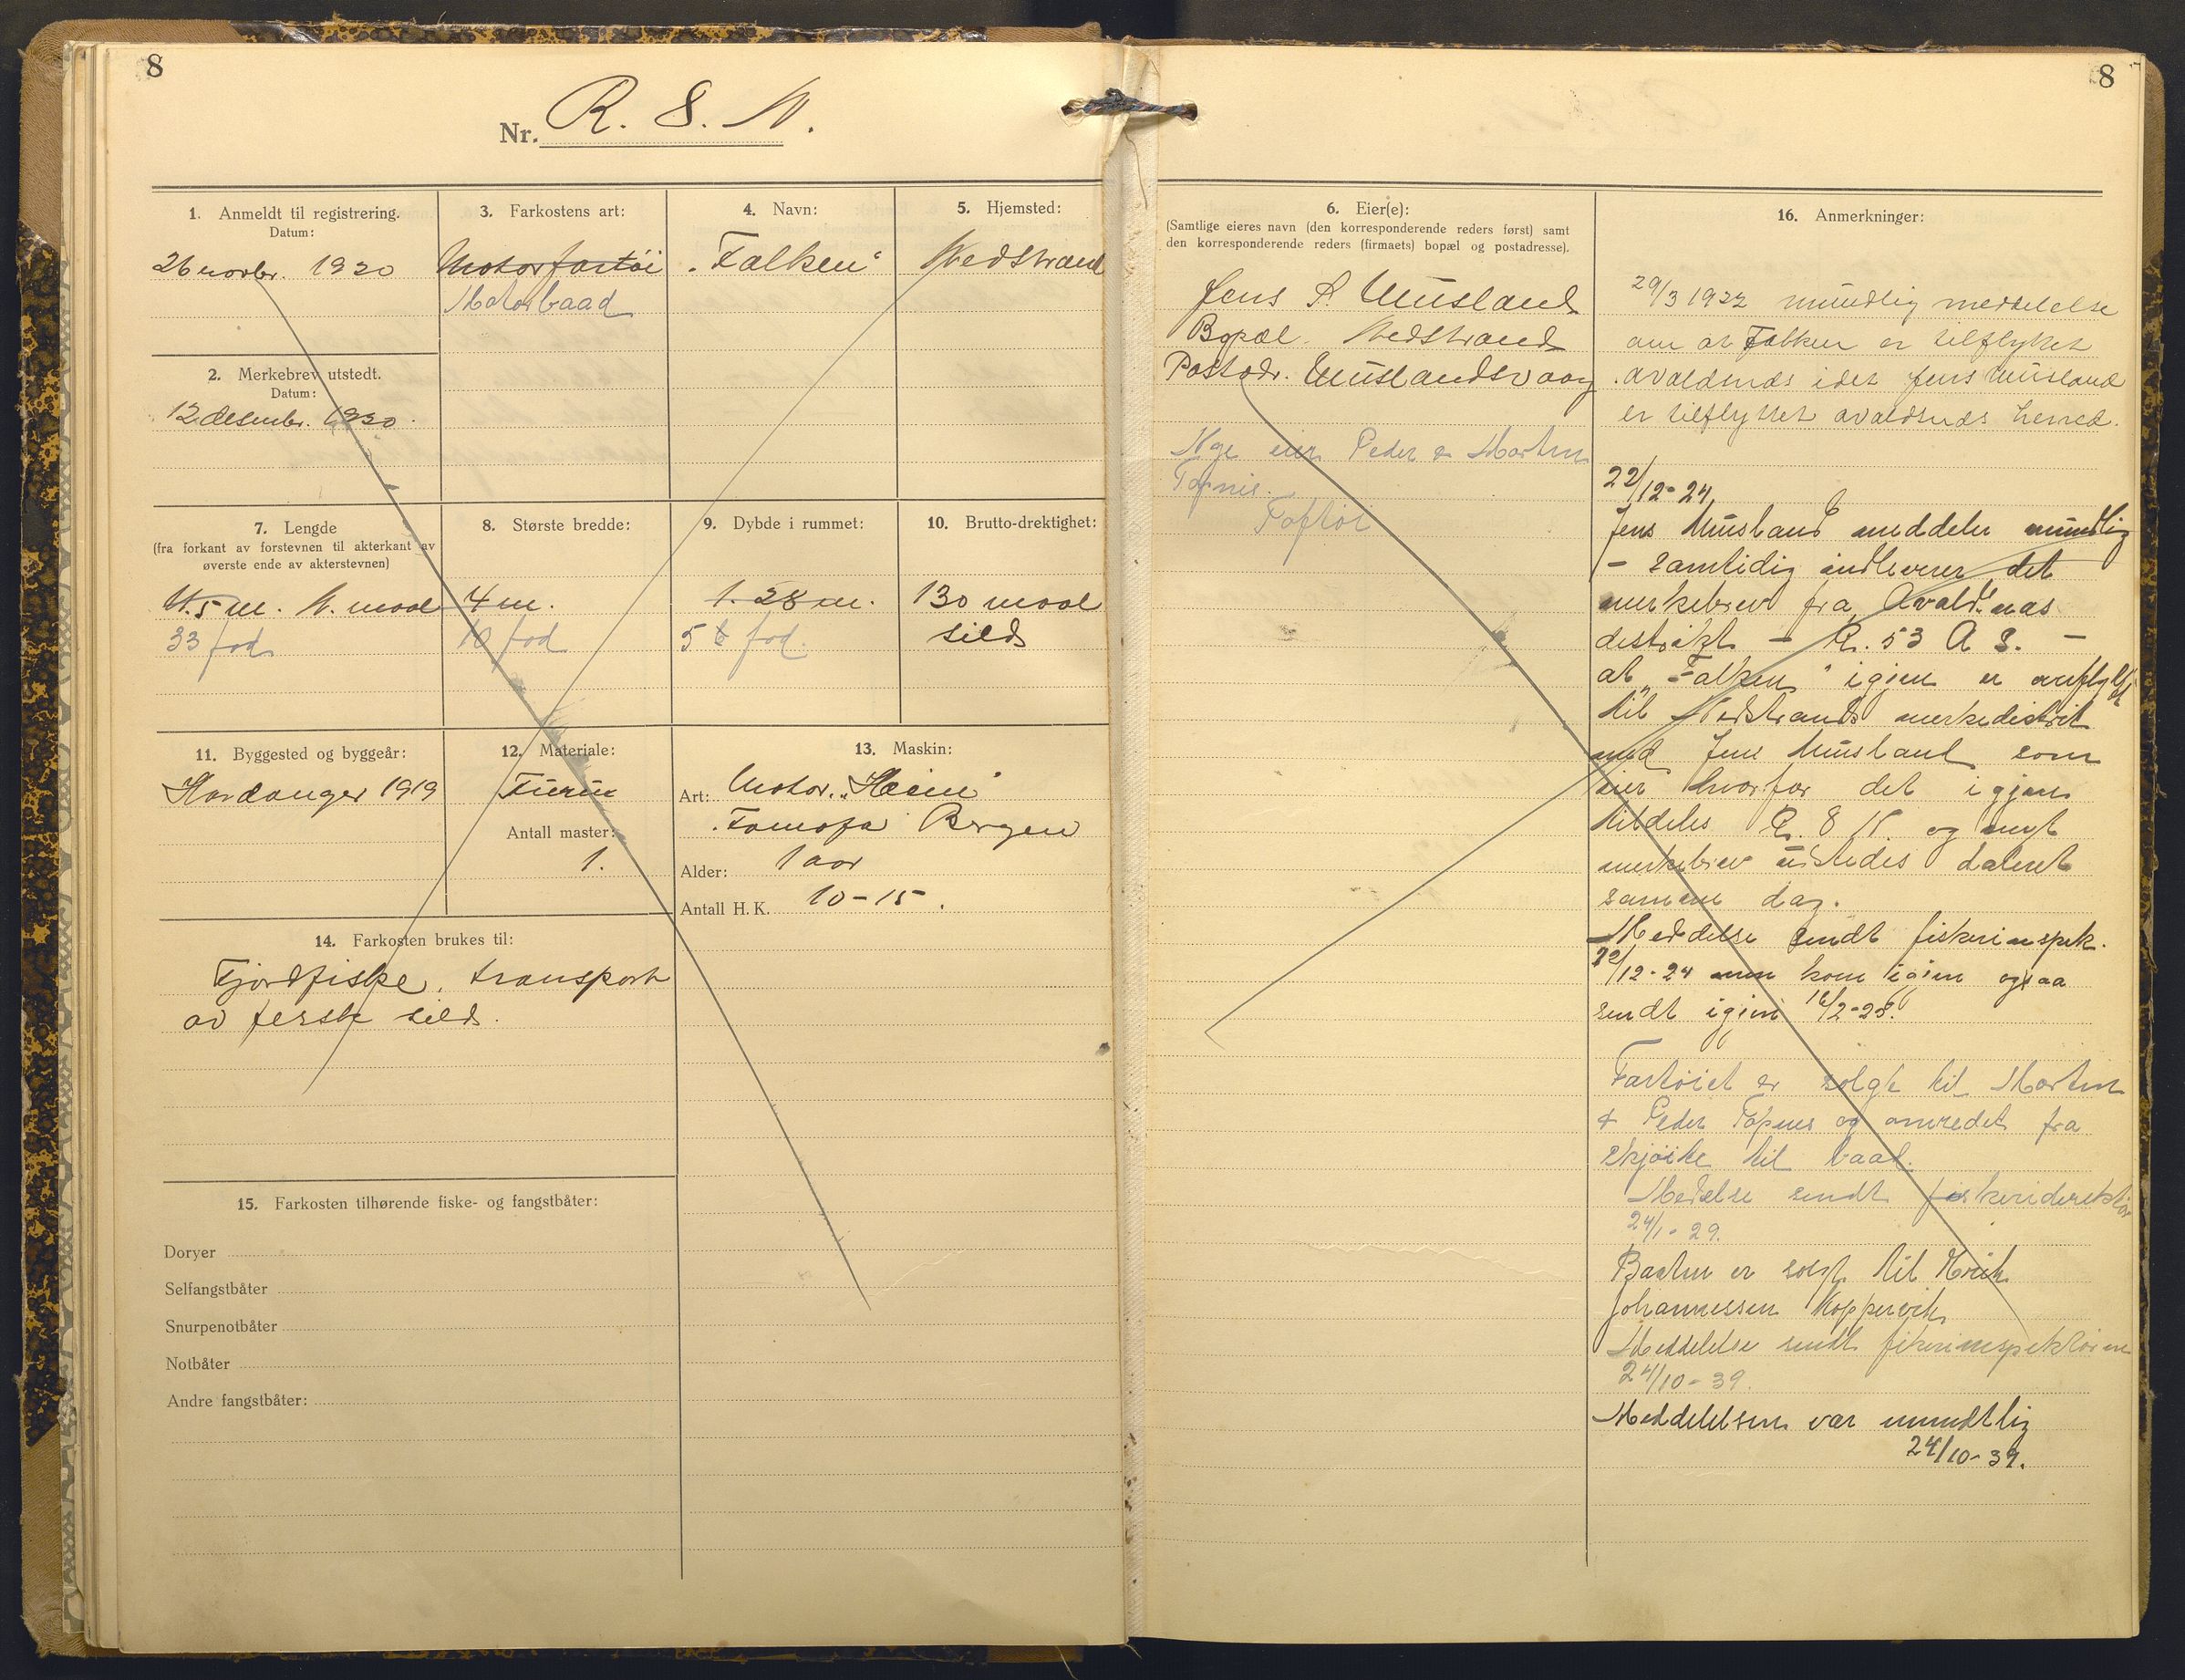 8
Nr. R. 8. N.
1. Anmeldt til registrering.
Datum:
26 novbr. 1920
2. Merkebrev utstedt.
Datum:
12 desembr. 1920.
3. Farkostens art:
Motorfartöi
Motorbaad
4. Navn:
"Falken"
5. Hjemsted:
Nedstrand
7. Lengde
(fra forkant av forstevnen til akterkant av
øverste ende av akterstevnen)
11.5 m. N. maal
33 fod
8. Største bredde:
4 m.
10 fod
9. Dybde i rummet:
1.28 m.
5 fod.
10. Brutto-drektighet:
130 maal
sild
11. Byggested og byggeår:
Hardanger 1919
12. Materiale:
Furu
Antall master:
1.
13. Maskin:
Art: Motor. "Hein"
Bergen
Alder: 1 aar
Antall H.K. 10-15.
14. Farkosten brukes til:
Fjordfiske, transport
av fersk sild.
15. Farkosten tilhørende fiske- og fangstbåter:
Doryer
Selfangstbåter
Snurpenotbåter
Notbåter
Andre fangstbåter:
8
6. Eier(e):
(Samtlige eieres navn (den korresponderende reders først) samt
den korresponderende reders (firmaets) bopæl og postadresse).
Jens S. Musland
Bopæl. Nedstrand
Postadr. Muslandsvaag
Nye eier Peder & Martin
Toftöi
16. Anmerkninger:
29/3 1922 mundlig meddelelse
om at Falken er tilflyttet
Avaldsnes idet Jens Musland
er tilflyttet avaldsnes herred.
22/12-24,
Jens Musland meddeler mundlig
- samtidig indleverer det
merkebrev fra Avaldsnas
distrikt - R. 53 A S. -
at "Falken" igjen er overflyttet
til Nedstrands merkedistrikt
med Jens Musland som
eier hvorfor det igjen
tildeles R. 8 N. og nyt
merkebrev utstedes dateret
samme dag.
Meddelse sendt fiskerinspek.
22/12-24 men kom igjen ogsaa
sendt igjen 16/2-25.
Fartöiet er solgt til Martin
& Peder og omredet fra
skjöite til baat.
Medelse sendt fiskeridirektör
24/1-29.
Baaten er solgt til Erik
Johannessen Koppervik
Meddelelse sendt fikerinspektören
24/10-39.
Meddelelsen var mundtlig
24/10-39.